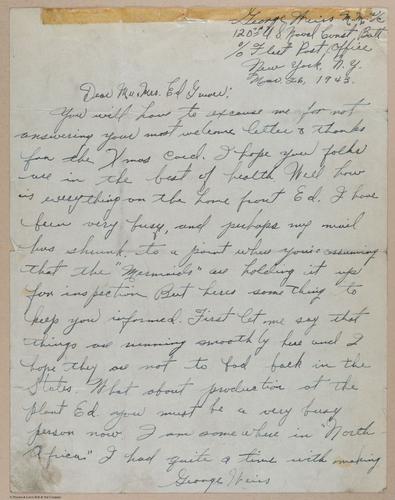 George Weirs M.M. 2/c
120th U.S Naval Const. Batt
c/o Fleet Post Office
New York, N.Y.
Mar. 26, 1943.
Dear Mr. Mrs. Ed
You will have to excuse me for not
answering your most welcome letter & thanks
for the Xmas card. I hope you folks
are in the best of health Well how
is everything on the home front Ed. I have
been very busy, and perhaps my mail
has shrunk to a point where you're assuming
that the "Mermaids" are holding it up
for inspection But heres something to
keep you informed. First let me say that
things are running smoothly here and I
hope they are not to bad back in the
States. What about production at the
plant Ed you must be a very busy
person now I am somewhere in "North
Africa" I had quite a time with making
George Weirs